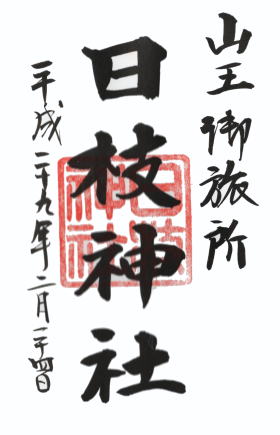 山王御旅所
日枝神社
日枝神社
平成二十九年二月二十四日